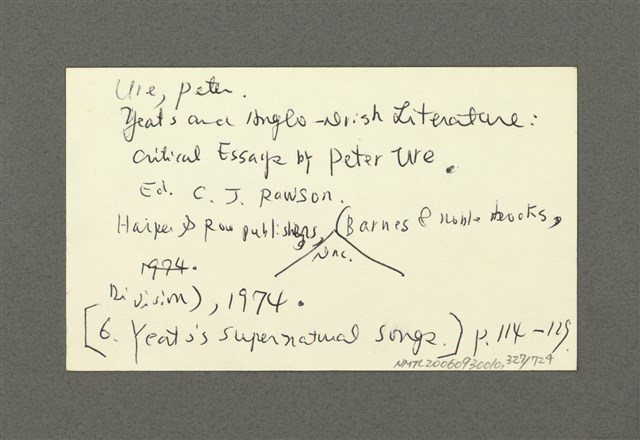 Ure, Peter.
Yeats and Anglo-Irish Literature:
Critical Essays by Peter Ure.
Ed. C. J. Rawson.
Harper & Row publishers, Inc. (Barnes & noble books,
1974.
Division), 1974.
[6. Yeats's Supernatural Songs.] p. 114-129
NMTL20060930010,327/724